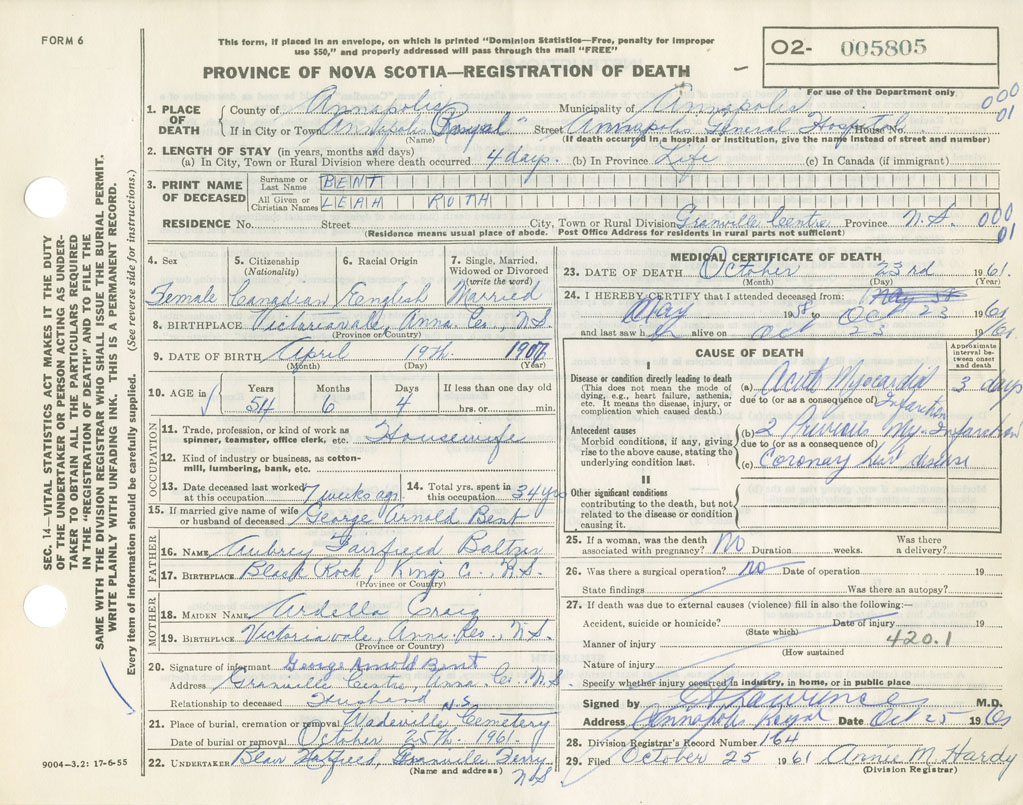 FORM 6
This form, if placed in an envelope, on which is printed "Dominion Statistics—Free, penalty for improper
use $50," and properly addressed will pass through the mail "FREE"
PROVINCE OF NOVA SCOTIA—REGISTRATION OF DEATH
02- 005805
For use of the Department only
1. PLACE OF DEATH
County of Annapolis Municipality of Annapolis 000
If in City or Town Annapolis Royal Street Annapolis General Hospital House No. 01
(Name) (If death occurred in a hospital or institution, give the name instead of street and number)
2. LENGTH OF STAY (in years, months and days)
(a) In City, Town or Rural Division where death occurred 4 days. (b) In Province Life (c) In Canada (if immigrant)
3. PRINT NAME OF DECEASED
Surname or Last Name BENT
All Given or Christian Names LEAH RUTH
RESIDENCE No. Street City, Town or Rural Division Granville Centre Province N.S. 000
(Residence means usual place of abode. Post Office Address for residents in rural parts not sufficient) 01
4. Sex 5. Citizenship (Nationality) 6. Racial Origin 7. Single, Married, Widowed or Divorced (write the word)
Female Canadian English Married
8. BIRTHPLACE Victoriavale, Anna. Co., N.S.
(Province or Country)
9. DATE OF BIRTH April 19th. 1907
(Month) (Day) (Year)
10. AGE in Years Months Days If less than one day old
54 6 4 hrs. or min.
OCCUPATION
11. Trade, profession, or kind of work as
spinner, teamster, office clerk, etc. Housewife
12. Kind of industry or business, as cotton-
mill, lumbering, bank, etc.
13. Date deceased last worked at this occupation 7 weeks ago. 14. Total yrs. spent in this occupation 34 yrs
15. If married give name of wife
or husband of deceased George Arnold Bent
FATHER
16. NAME Aubrey Fairfield Baltzer
17. BIRTHPLACE Black Rock, Kings Co., N.S.
(Province or Country)
MOTHER
18. MAIDEN NAME Ardella Craig
19. BIRTHPLACE Victoriavale, Anna. Co., N.S.
(Province or Country)
20. Signature of informant George Arnold Bent
Address Granville Centre, Anna. Co. N.S.
Relationship to deceased Husband
N.S.
21. Place of burial, cremation or removal Wadeville Cemetery
Date of burial or removal October 25th. 1961.
22. UNDERTAKER Blair Granville Ferry
(Name and address) N.S.
MEDICAL CERTIFICATE OF DEATH
23. DATE OF DEATH October 23rd 1961.
(Month) (Day) (Year)
24. I HEREBY CERTIFY that I attended deceased from:
May 1958 to Oct 23 1961
and last saw h er alive on Oct 23 1961
CAUSE OF DEATH
Approximate interval between onset and death
I
Disease or condition directly leading to death
(This does not mean the mode of
dying, e.g., heart failure, asthenia,
etc. It means the disease, injury, or
complication which caused death.)
(a) Acute Myocardial 3 days
due to (or as a consequence of) Infarction
Antecedent causes
Morbid conditions, if any, giving
rise to the above cause, stating the
underlying condition last.
(b) 2 Previous My. Infarction
due to (or as a consequence of)
(c) Coronary disease
II
Other significant conditions
contributing to the death, but not
related to the disease or condition
causing it.
25. If a woman, was the death
associated with pregnancy? NO Duration weeks. Was there a delivery?
26. Was there a surgical operation? NO Date of operation 19
State findings Was there an autopsy?
27. If death was due to external causes (violence) fill in also the following:—
Accident, suicide or homicide? Date of injury 19
(State which)
Manner of injury 420.1
(How sustained
Nature of injury
Specify whether injury occurred in industry, in home, or in public place
Signed by Lawrence M.D.
Address Annapolis Royal Date Oct 25 1961
28. Division Registrar's Record Number 164
29. Filed October 25 1961 Annie M. Hardy
(Division Registrar)
SEC. 14—VITAL STATISTICS ACT MAKES IT THE DUTY
OF THE UNDERTAKER OR PERSON ACTING AS UNDER-
TAKER TO OBTAIN ALL THE PARTICULARS REQUIRED
IN THE "REGISTRATION OF DEATH" AND TO FILE THE
SAME WITH THE DIVISION REGISTRAR WHO SHALL ISSUE THE BURIAL PERMIT.
WRITE PLAINLY WITH UNFADING INK. THIS IS A PERMANENT RECORD.
Every item of information should be carefully supplied. (See reverse side for instructions.)
9004—3.2: 17-6-55